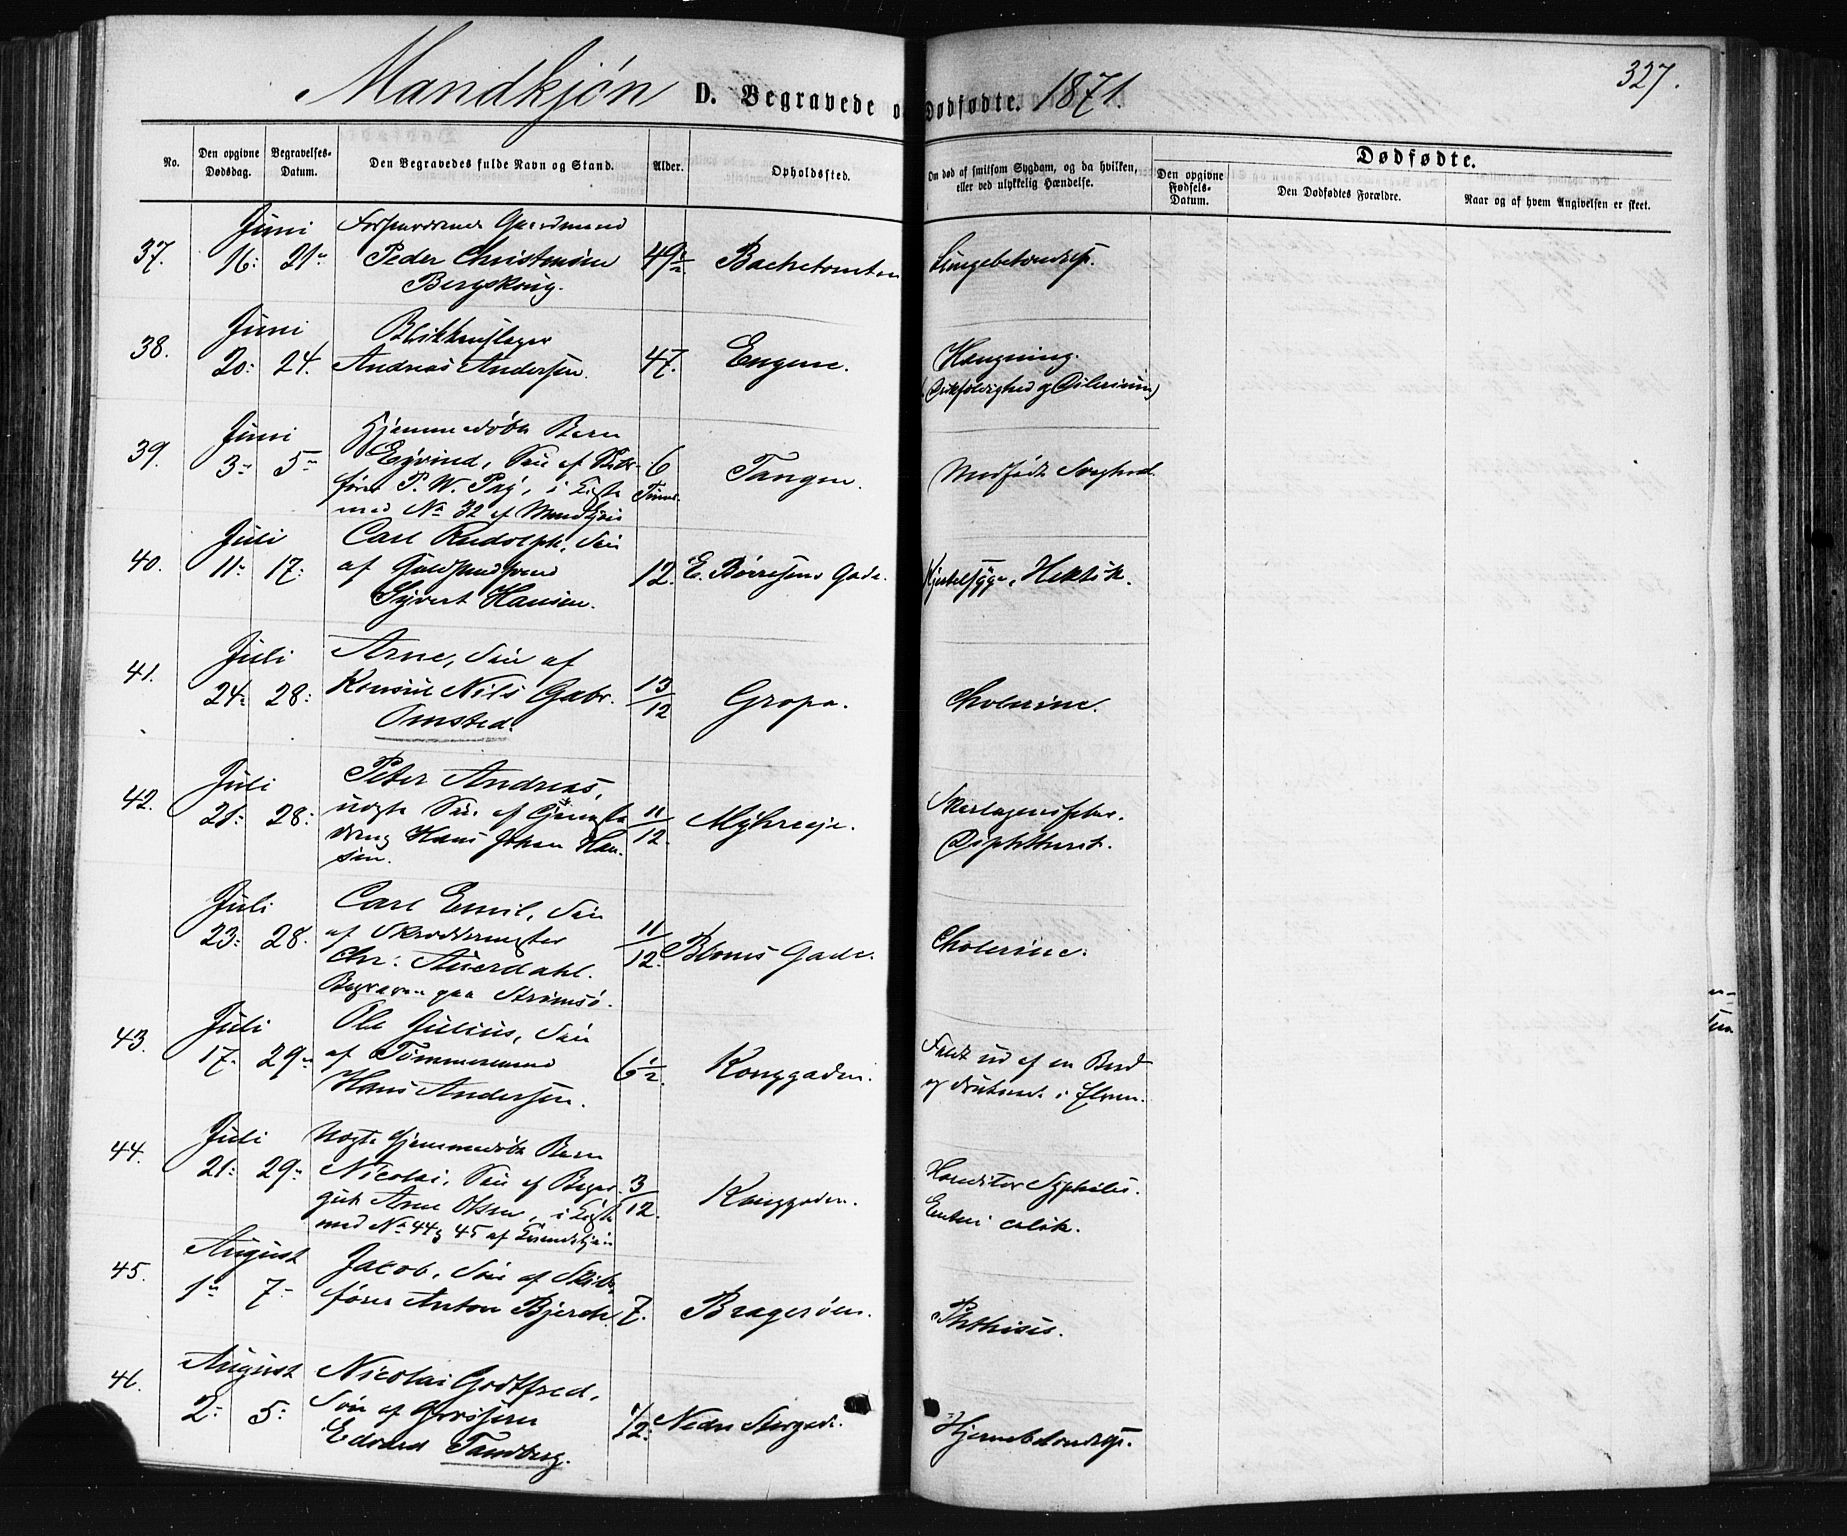 Mandkjøn D. Begravede o Dødfødte. 1871. 327.
No. Den opgivne Dødsdag. Begravelses-Datum. Den Begravedes fulde Navn og Stand. Alder. Opholdssted. Om død af smitsom Sygdom, og da hvilken, eller ved ulykkelig Hændelse. Dødfødte.
Den opgivne Fødsels-Datum. Den Dødfødtes Forældre. Naar og af hvem Angivelsen er skeet.
Juni Gaardmand
37. 16: 21 Peder Christensen 49½ Bachetomten Lungebetændelse.
Bergskoug.
Juni Blikkenslager
38. 20: 24. Andreas Andersen. 47. Engene. Hængning.
Juni Hjemmedøbt Barn
39. 3 5 Eyvind, Søn af Skibs- 6 Tangen. Medfødt Svaghed
fører P. W. Paj, i Kiste Timer
med No 32 af Mandkjøn
Juli Carl Rudolph, Søn
40. 11 17: af Guldsmedsvend 12. E. Børresens Gade. Kjertelsyge, Hektik.
Syvert Hansen.
Juli Arne, Søn af
41. 24 28: Konsul Nils Gabr. 13/12 Gropa. Cholerine.
Omsted.
Juli Peter Andreas,
42. 21: 28: uægte Søn af 11/12 Myhreeje. Skarlagensfeber.
dreng Hans Johan Han- Diphtherit.
sen.
Juli Carl Emil, Søn
23: 28. af Skræddermester 11/12. Bloms Gade. Cholerine.
Chr. Auerdahl.
Begraven paa Strømsø.
Juli Ole Julius, Søn
43. 17. 29 af Tømmermand 6½. Konggaden. Faldt ud af en Baad
Hans Andersen. og druknet i Elven.
Juli Uægte hjemmedøbt Barn
44. 21: 29 Nicolai, Søn af 3/12. Konggaden. Syphilis.
Arne Olsen, i Kiste
med No 44 og 45 af Kvindekjøn
August Jacob, Søn af Skibs-
45. 1 7 fører Anton Bjerch. 7. Bragerøen. Phthisis.
August Nicolai Godtfred,
46. 2: 5: Søn af Grosserer 1/2: Nedre Storgade. Hjernebetændelse.
Edvard Tandberg.